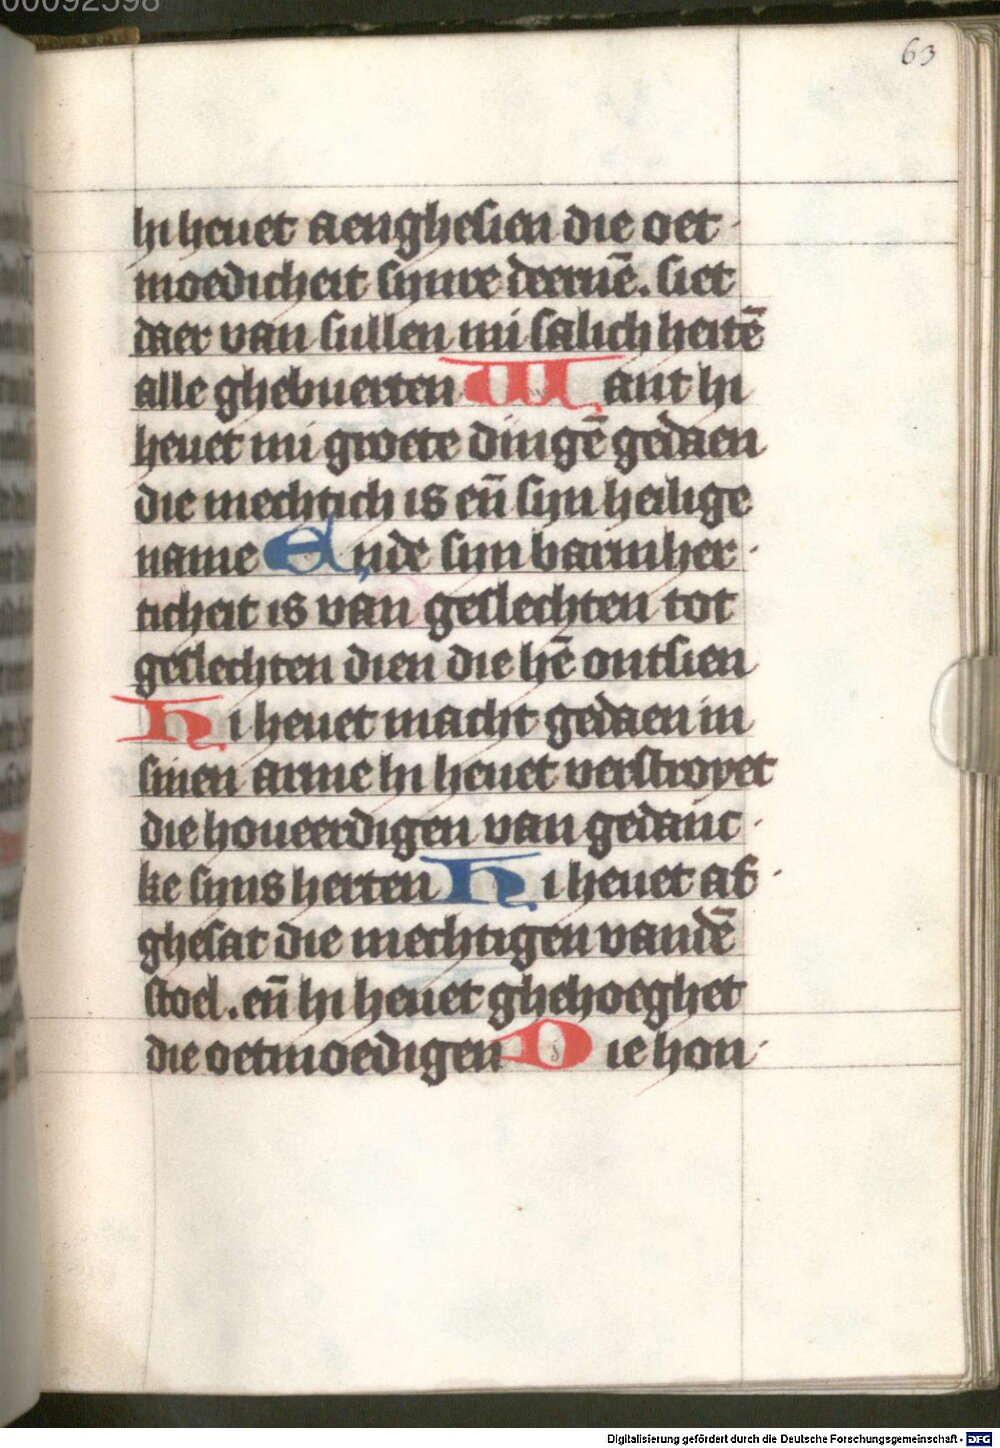 00092598
63
hi heuet aenghesien die oet
moedicheit synre deernē. siet
daer van sullen mi salich heitē
alle gheb uerten Want hi
heuet mi groete dingē gedaen
die mechtich is eñ syn heilige
name Ende sijn barmher
ticheit is van geslechten tot
geslechten dien die hē ontsien
Hi heuet macht gedaen in
sinen arme hi heuet verstroyet
die houeerdigen van gedanc
ke syns herten Hi heuet af
ghesat die mechtigen vandē
stoel. eñ hi heuet ghehoeghet
die oetmoedigen Die hon
Digitalisierung gefördert durch die Deutsche Forschungsgemeinschaft - DFG